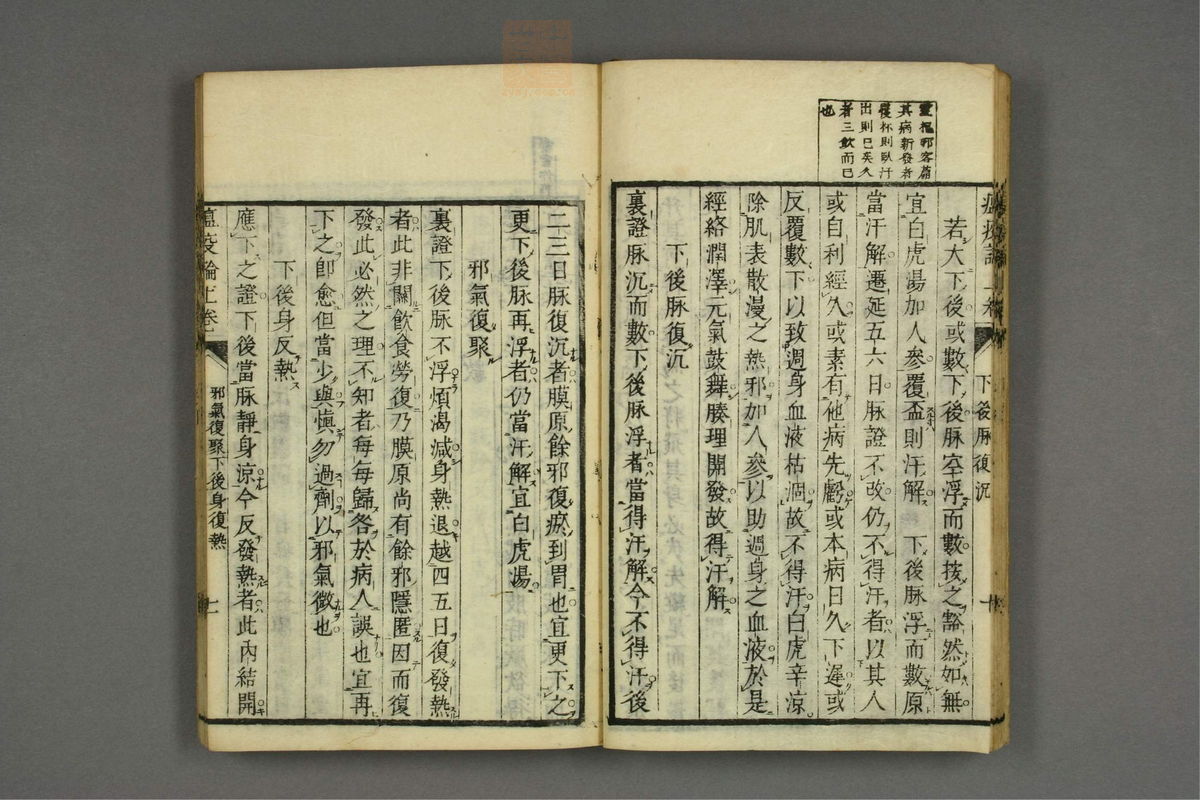 靈樞邪客篇
其病新發者
覆杯則臥汗
出則已矣久
者三飲而已
也
下後脉復沉
若大下後或數下後脉空浮而數按之豁然如無
宜白虎湯加人參覆盃則汗解下後脉浮而數原
當汗解遷延五六日脉證不改仍不得汗者以其人
或自利經久或素有他病先虧或本病日久下遲或
反覆數下以致週身血液枯涸故不得汗白虎辛凉
除肌表散漫之熱邪加人參以助週身之血液於是
經絡潤澤元氣鼓舞腠理開發故得汗解
下後脉復沉
裏證脉沉而數下後脉浮者當得汗解今不得汗後
二三日脉復沉者膜原餘邪復瘀到胃也宜更下之
更下後脉再浮者仍當汗解宜白虎湯
邪氣復聚
裏證下後脉不浮煩渴減身熱退越四五日復發熱
者此非關飲食勞復乃膜原尚有餘邪隱匿因而復
發此必然之理不知者每每歸咎於病人誤也宜再
下之卽愈但當少與愼勿過劑以邪氣微也
下後身反熱
應下之證下後當脉靜身凉今反發熱者此內結開
瘟疫論上卷
邪氣復聚下後身復熱